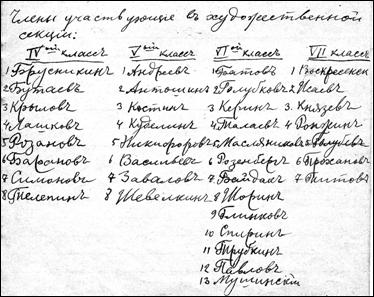 Члены участвующіе въ художественной
секціи:
IVый классъ Vый классъ VIой классъ VII классъ
1 Брусникинъ 1 Андреевъ 1 Батовъ 1 Воскресенск
2 2 Антошкинъ 2 Голубковъ 2 Исаевъ
3 Крыловъ 3 Костинъ 3 3 Князевъ
4 Лашковъ 4 4 Малаевъ 4
5 Розановъ 5 Никифоровъ 5 Масляниковъ 5 Голубевъ
6 6 Васильевъ 6 Розенбергъ 6
7 Симоновъ 7 Заваловъ 7 7 Титовъ
8 Телепинъ 8 Шевелкинъ 8 Шоринъ
9 Блинковъ
10 Спиринъ
11 Трубкинъ
12 Павловъ
13 Мушинскій